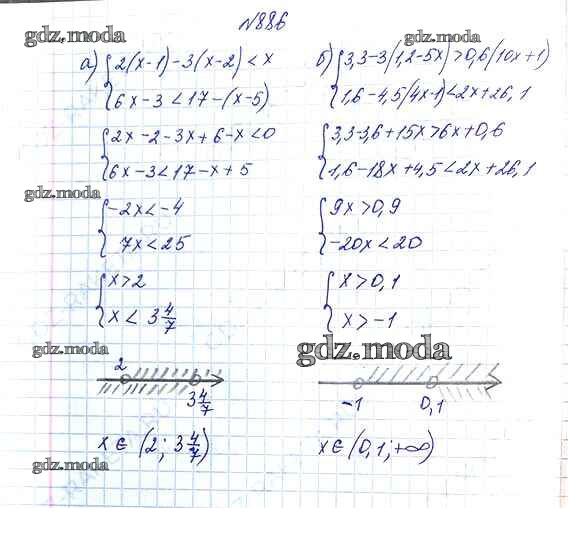 №886
gdz.moda
gdz.moda
а) 2(x-1)-3(x-2)<x
6x-3<17-(x-5)
2x-2-3x+6-x<0
6x-3<17-x+5
gdz.moda
-2x<-4
7x<25
x>2
x<3 4/7
gdz.moda
2
3 4/7
x∈(2; 3 4/7)
gdz.moda
б) 3,3-3(1,2-5x)>0,6(10x+1)
1,6-4,5(4x-1)<2x+26,1
3,3-3,6+15x>6x+0,6
1,6-18x+4,5<2x+26,1
9x>0,9
-20x<20
x>0,1
x>-1
gdz.moda
-1
0,1
x∈(0,1;+∞)